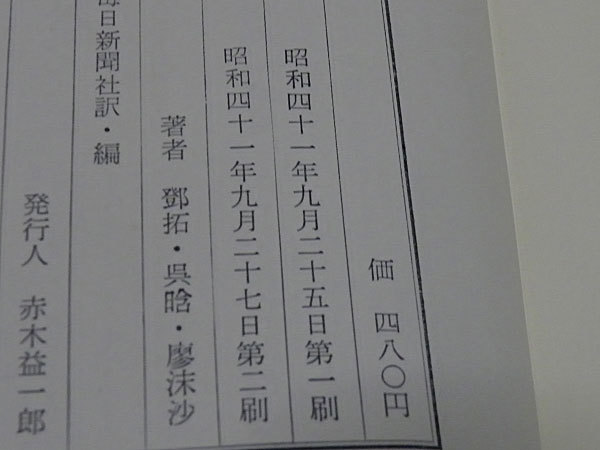 価 四八〇円
昭和四十一年九月二十五日第一刷
昭和四十一年九月二十七日第二刷
著者 鄧拓・呉晗・廖沫沙
毎日新聞社訳・編
発行人 赤木益一郎